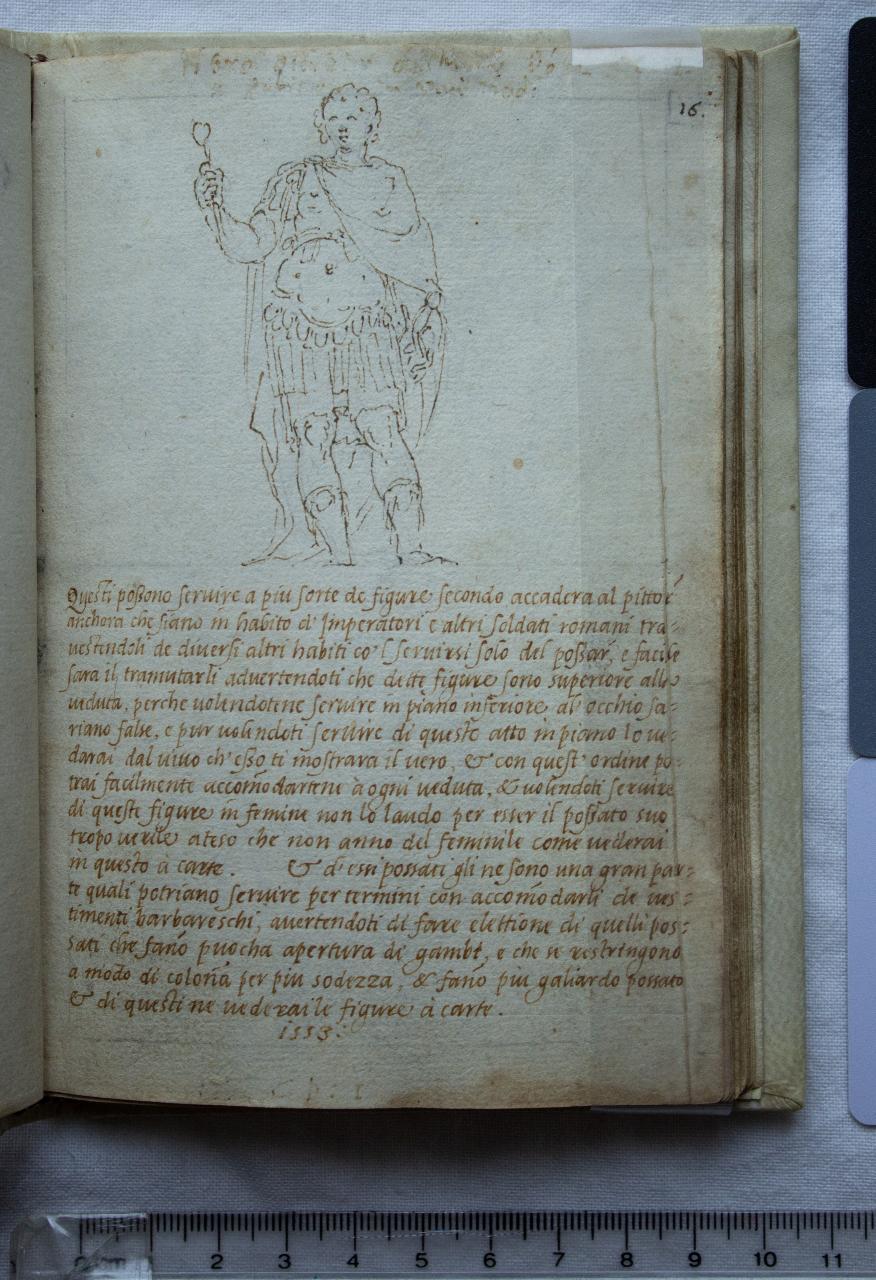 16.
Questi possono seruire a piu sorte de figure secondo accadera al pittor
anchora che siano in habito d' Imperatori e altri soldati romani tra=
uestendoli de diuersi altri habiti co'l seruirsi solo del possar, e facile
sara il tramutarli aduertendoti che dette figure sono superiore alla
ueduta, perche uolendotene seruire in piano inferiore al' occhio sa=
riano false, e pur uolendoti seruire di questo atto in piano lo ue=
darai dal uiuo ch'esso ti mostrara il uero, & con quest' ordine po=
trai facilmente accomodartene à ogni ueduta, & uolendoti seruire
di queste figure in femine non lo laudo per esser il possato suo
tropo uerile ateso che non anno del feminile come uederai
in questo à carte. & d'essi possati gli ne sono una gran par=
te quali potriano seruire per termini con accomodarli de ues=
timenti barbareschi, auertendoti di fare elettione di quelli pos=
sati che fano puocha apertura di gambe, e che se restringono
a modo di colona per piu sodezza, & fano piu galiardo possato
& di questi ne uederai le figure à carte.
1553:
2 3 4 5 6 7 8 9 10 11